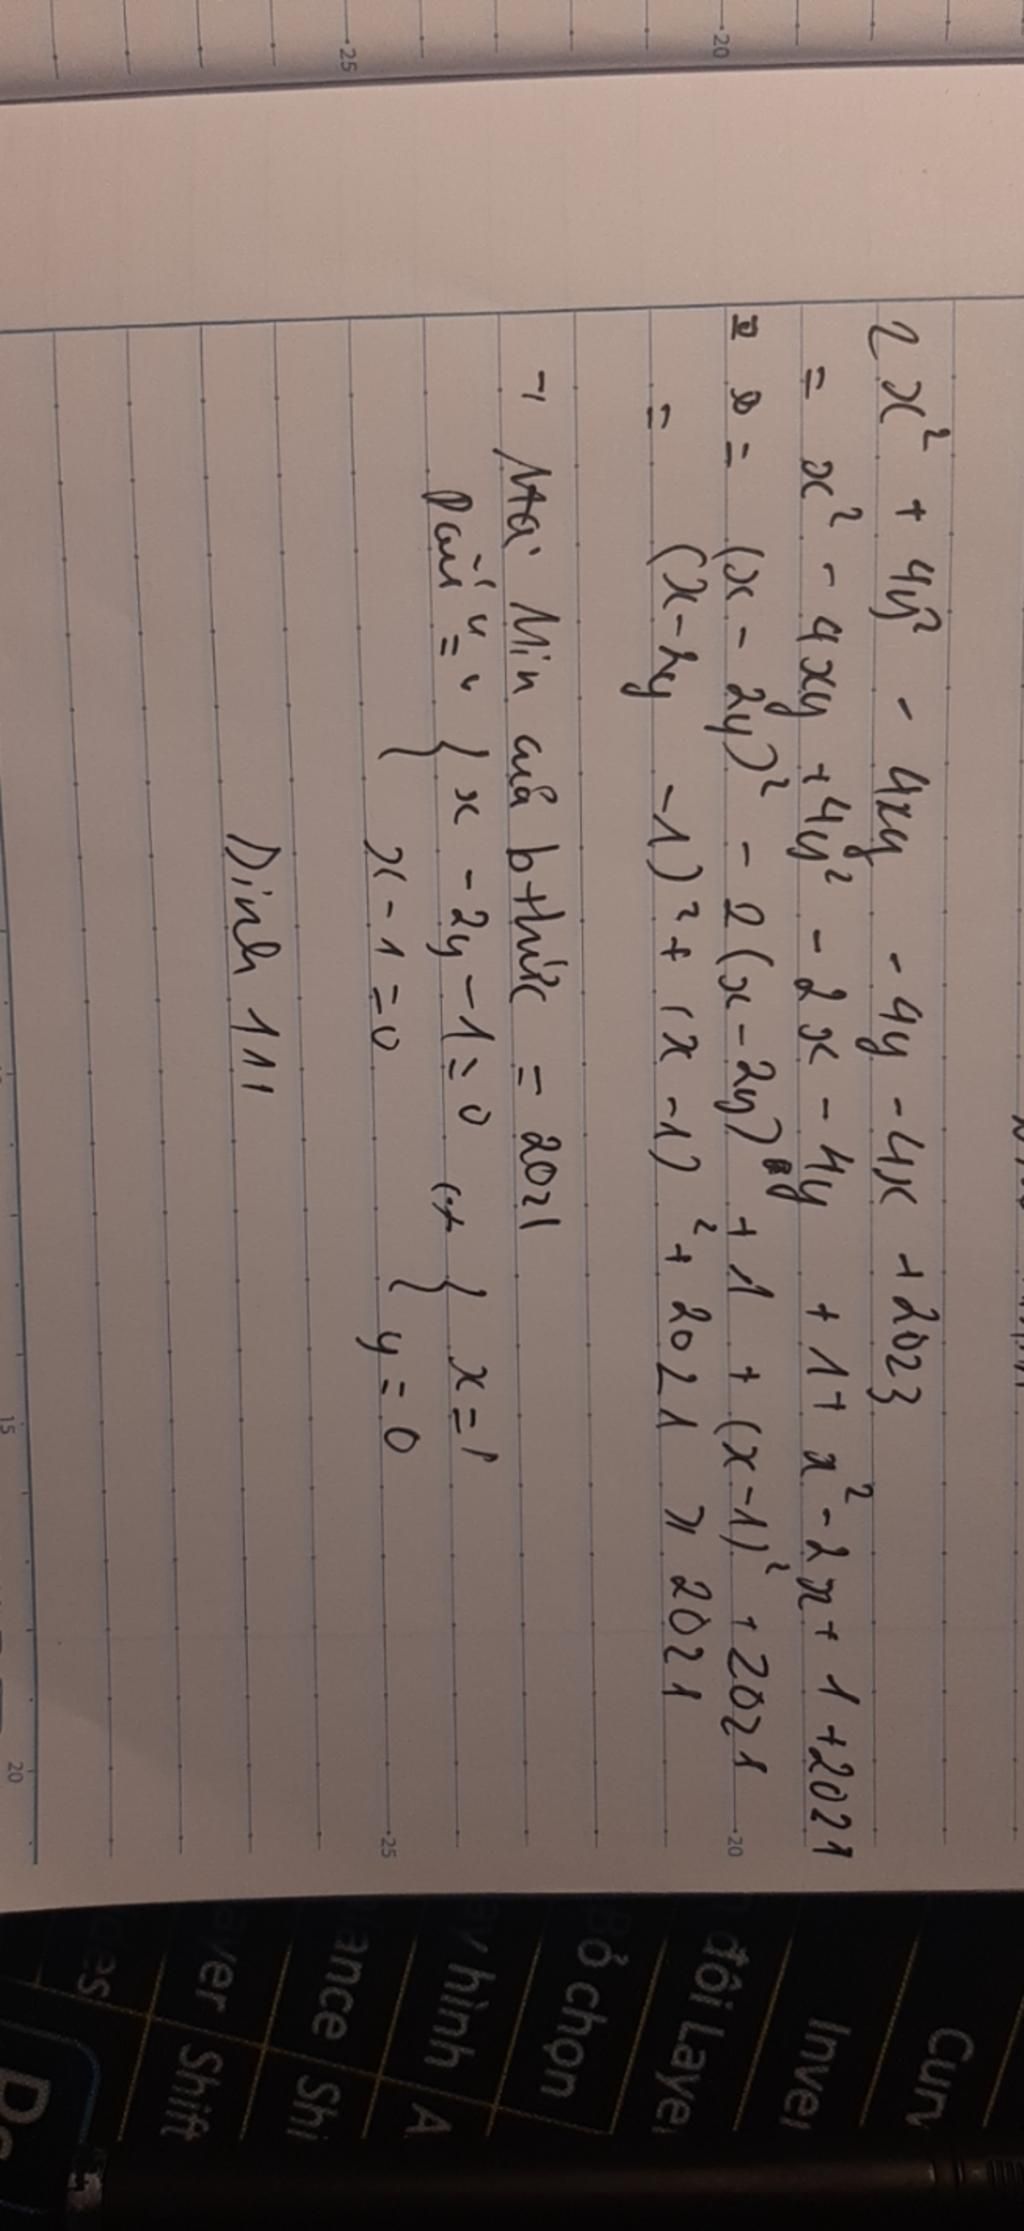 2x² + 4y² - 4xy - 4y - 4x + 2023
= x² - 4xy + 4y² - 2x - 4y + 1 + x² - 2x + 1 + 2021
= (x - 2y)² - 2(x - 2y) + 1 + (x - 1)² + 2021
= (x - 2y - 1)² + (x - 1)² + 2021 ≥ 2021
Min của bthức = 2021
Dấu "=" { x - 2y - 1 = 0 (+) { x = 1
x - 1 = 0 y = 0
Dinh 111
20
25
20
25
15
20
Cun
Inve
đôi Laye
Bỏ chọn
hình A
ance Shi
ayer Shift
des